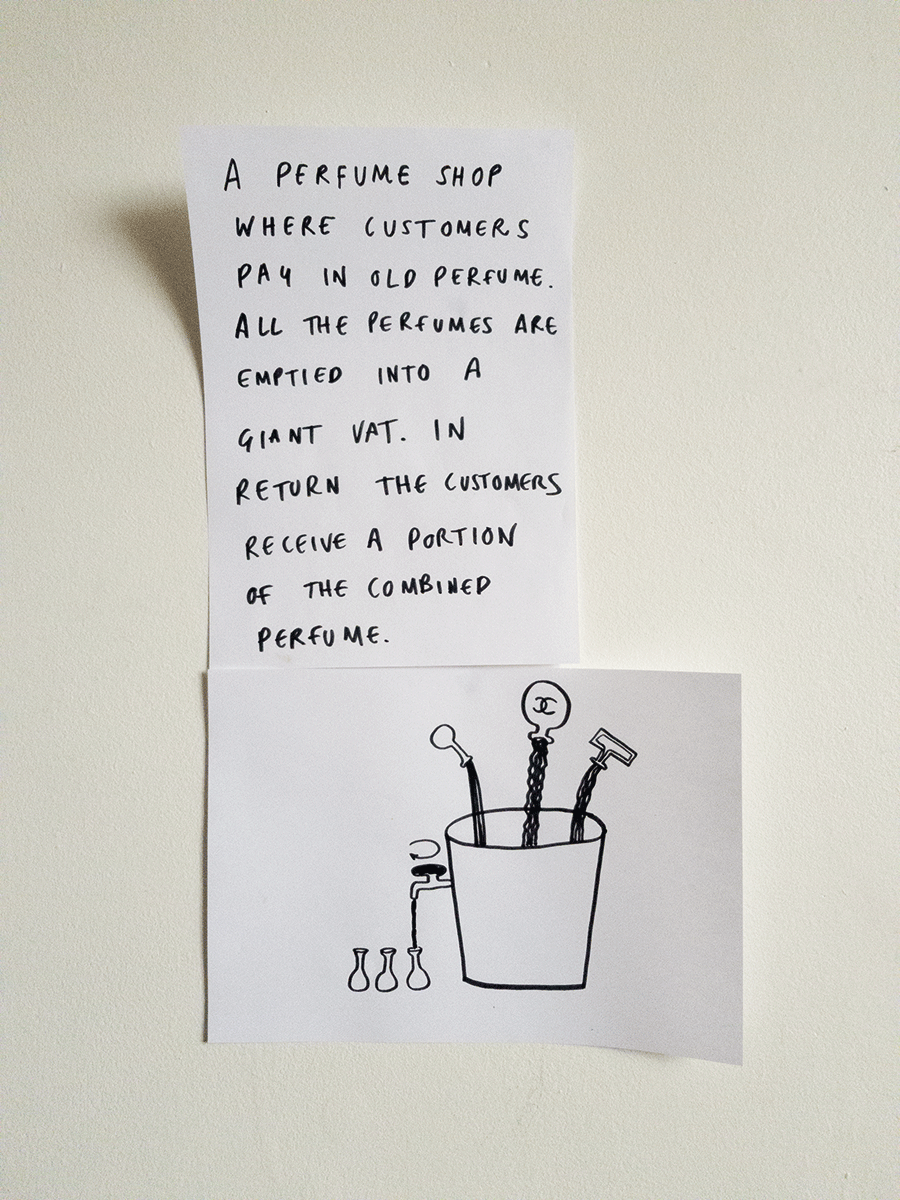 A PERFUME SHOP
WHERE CUSTOMERS
PAY IN OLD PERFUME.
ALL THE PERFUMES ARE
EMPTIED INTO A
GIANT VAT. IN
RETURN THE CUSTOMERS
RECEIVE A PORTION
OF THE COMBINED
PERFUME.